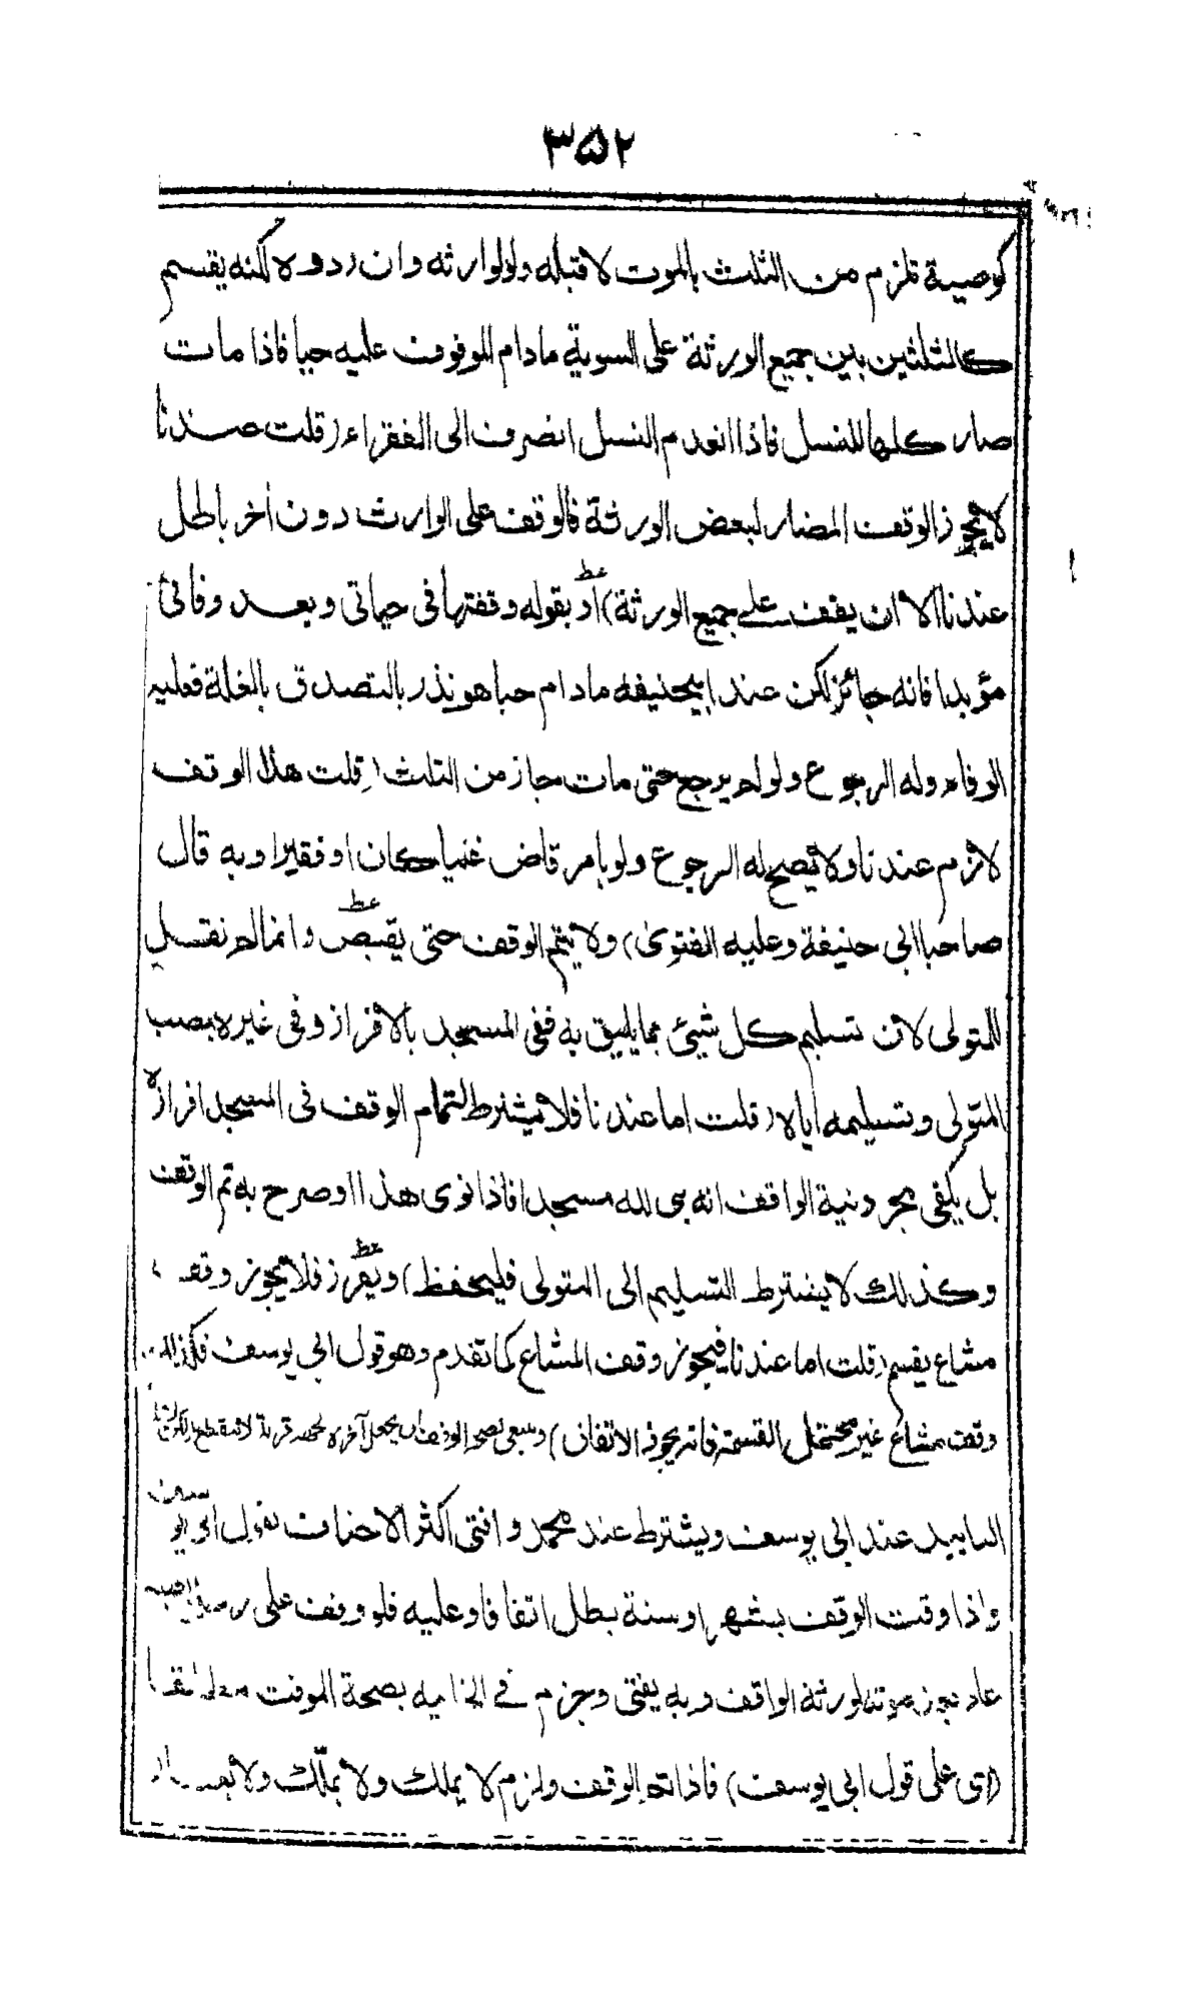 ٣٥٢
كوصية تلزم من الثلث بالموت لا قبله ولولوارثه وان ردوه لاكنه يقسم
كالثلثين بين جميع الورثة على السوية مادام الموقوف عليه حيا فاذا مات
صار كلها للنسل فاذا انعدم النسل انصرف الى الفقراء (قلت عندنا
لا يجوز الوقف المضار لبعض الورثة فالوقف على الوارث دون أخر باطل
عندنا الا ان يقف على جميع الورثة) او بقوله وقفتها فى حياتى وبعد وفاتى
مؤبدا فانه جائز لكن عند ابيحنيفه مادام حيا هو نذر بالتصدق بالغلة فعليه
الوفاء وله الرجوع ولو لم يرجع حتى مات جاز من الثلث (قلت هذا الوقف
لازم عندنا ولا يصح له الرجوع ولو بامر قاض غنيا كان او فقيرا وبه قال
صاحبا ابى حنيفة وعليه الفتوى) ولا يتم الوقف حتى يقبض وانما لم نقل
للمتولى لان تسليم كل شيئ بما يليق به ففى المسجد بالافراز وفى غيره بنصب
المتولى وتسليمه اياه (قلت اما عندنا فلا يشترط لتمام الوقف فى المسجد افرازه
بل يكفى مجرد نية الواقف انه بنى لله مسجدا فاذا نوى هذا او صرح به تم الوقف
وكذلك لا يشترط التسليم الى المتولى فليحفظ) ويفرز فلا يجوز وقف
مشاع يقسم (قلت اما عندنا فيجوز وقف المشاع كما تقدم وهو قول ابى يوسف فكذلك
وقف مشاع غير محتمل القسمة فانه يجوز الاتفاق) وينبغى لصحة الوقف ان يجعل آخره لجهة قربة لا تنقطع
التابيد عند ابى يوسف ويشترط عند محمد وافتى اكثر الاحناف بقول ابى يوسف
واذا وقت الوقف بشهر او سنة بطل اتفاقا وعليه فلو وقف على رجل بعينه
عاد بعد موته لورثة الواقف وبه يفتى وجزم فى الخانيه بصحة الموقت مطلقا
(اى على قول ابى يوسف) فاذا تم الوقف ولزم لا يملك ولا يملّك ولا يعار